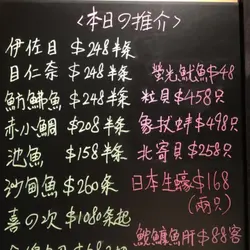 <本日の推介>
伊佐目 $248半条
目仁奈 $248半条
魴鮄魚 $248半条
赤小鯛 $208半条
池魚 $158半条
沙甸魚 $260条
喜の次 $1080条起
螢光魷魚 $48
粒貝 $458只
象拔蚌 $498只
北寄貝 $258只
日本生蠔 $168
(兩只)
鮟鱇魚肝 $88客